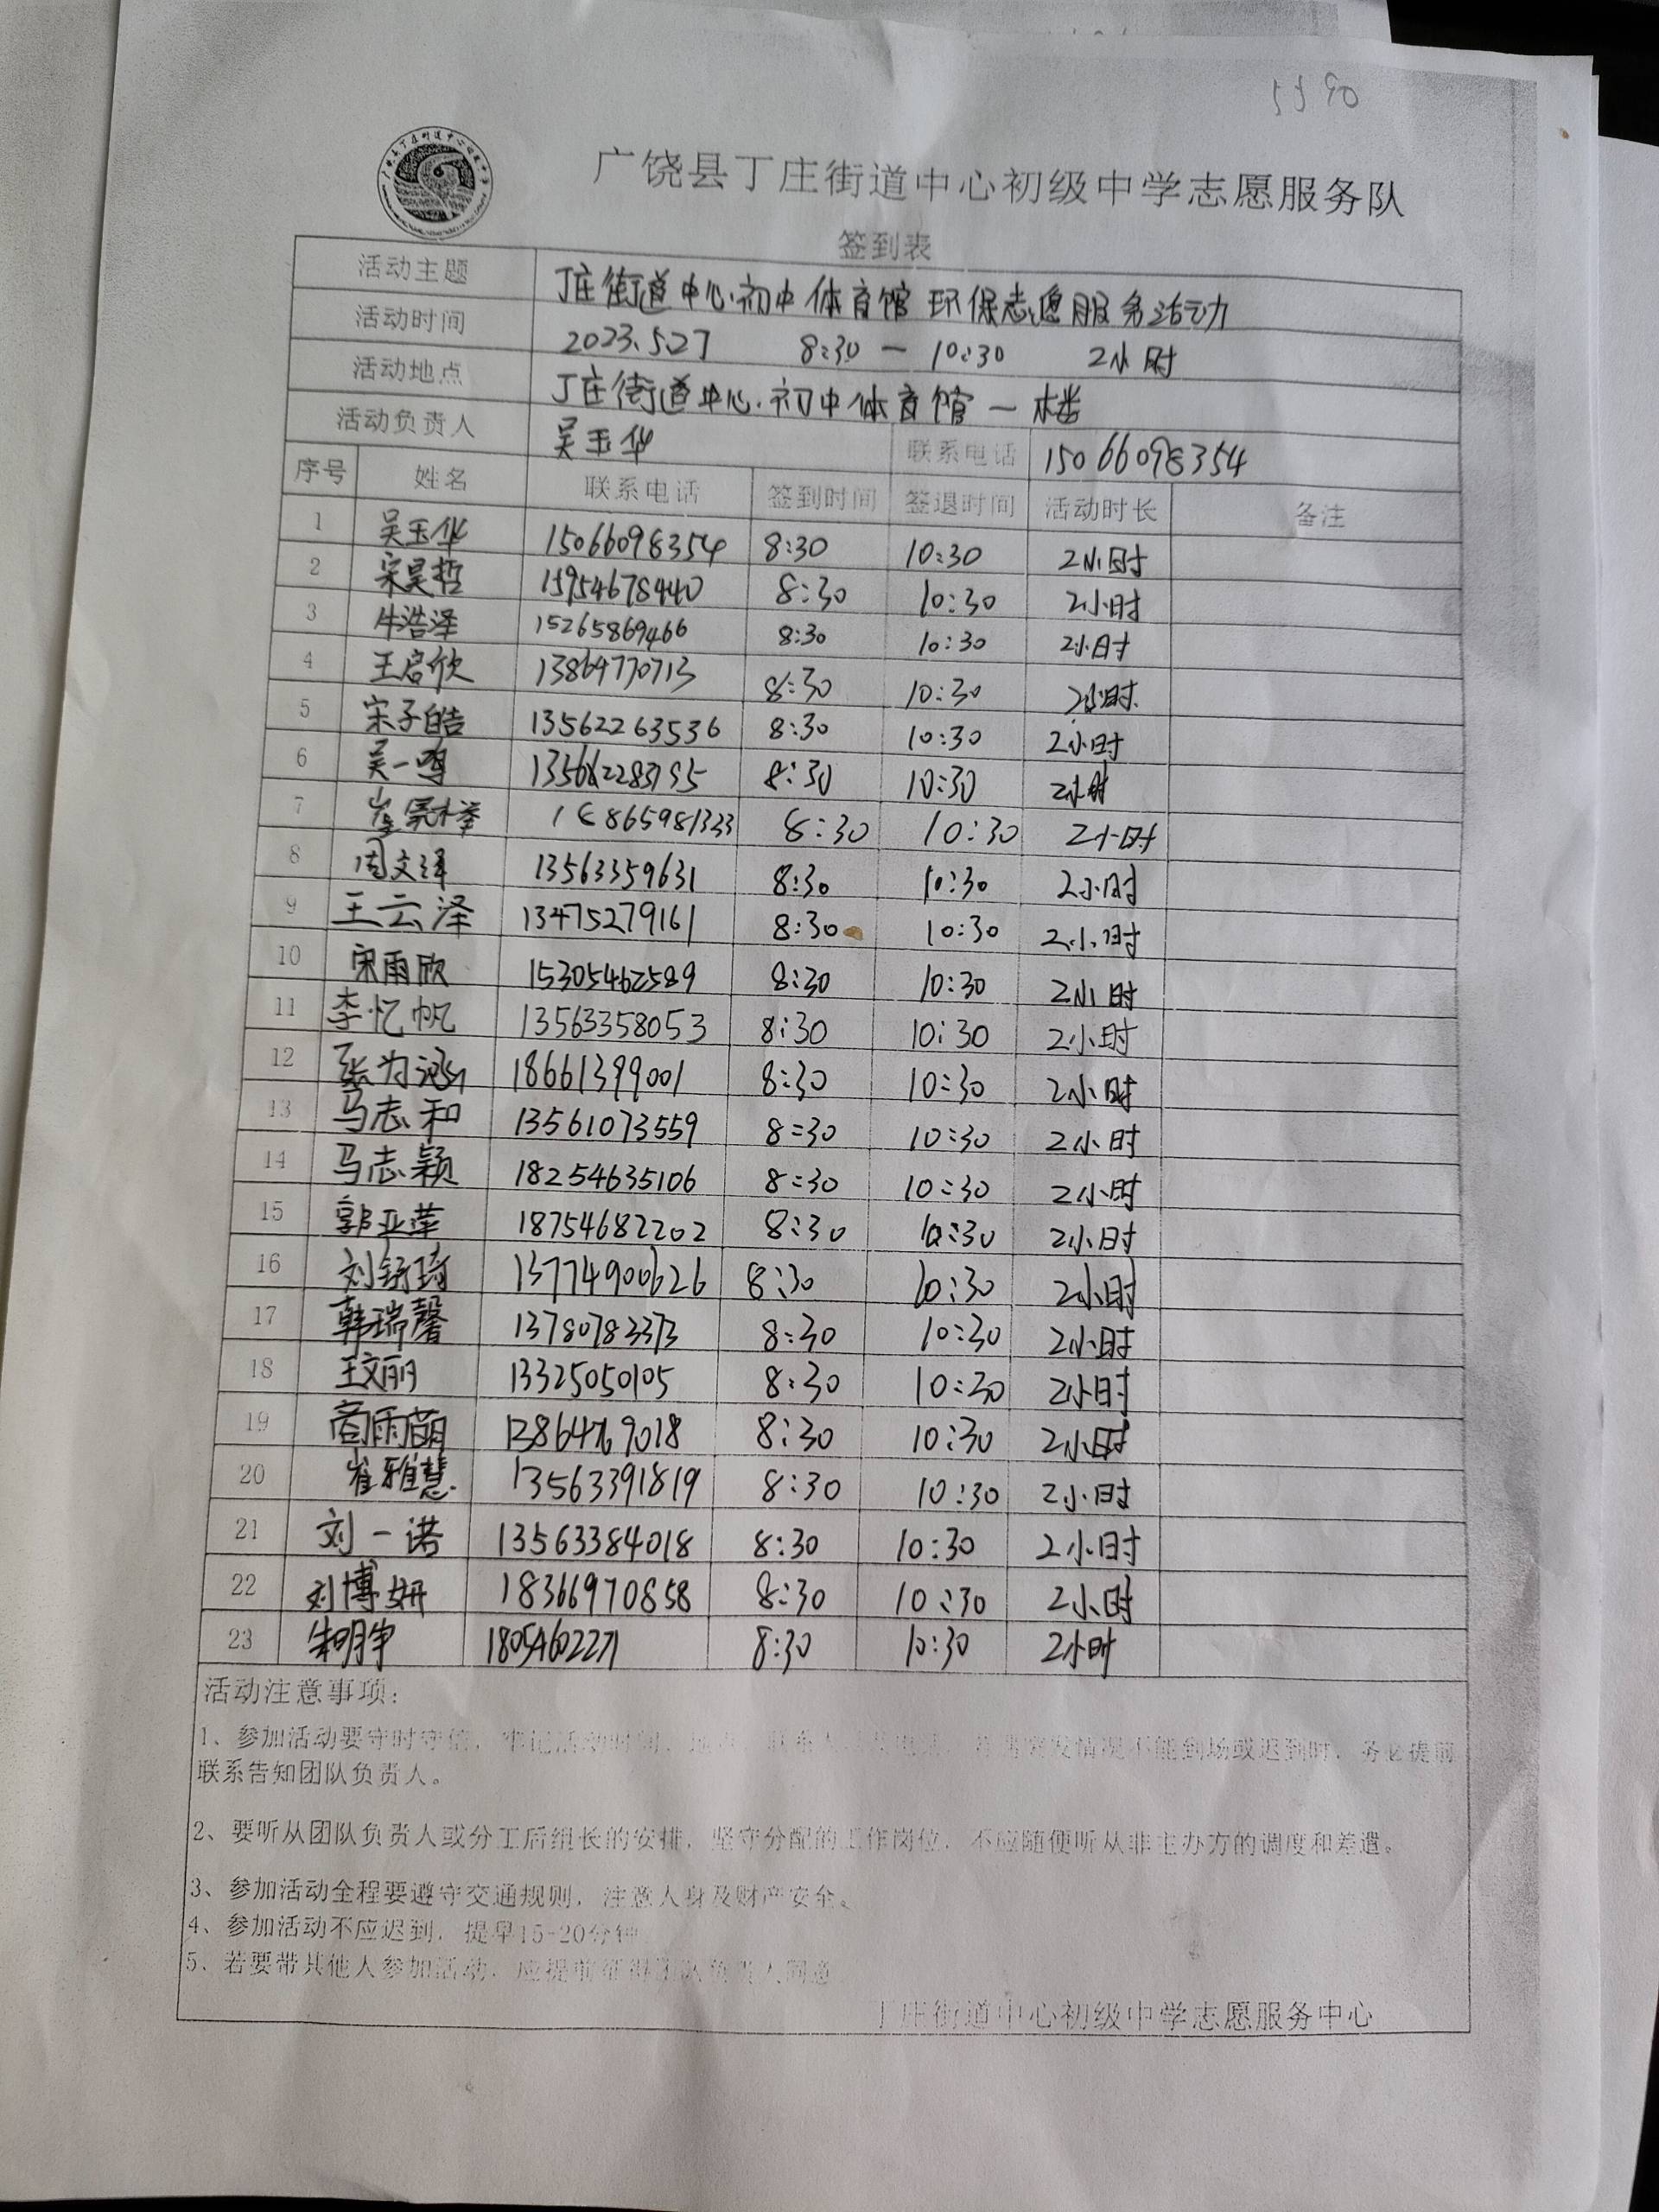 5590
广饶县丁庄街道中心初级中学志愿服务队
签到表
活动主题 丁庄街道中心初中体育馆环保志愿服务活动
活动时间 2023.5.27 8:30 — 10:30 2小时
活动地点 丁庄街道中心初中体育馆一楼
活动负责人 吴玉华 联系电话 15066098354
序号 姓名 联系电话 签到时间 签退时间 活动时长 备注
1 吴玉华 15066098354 8:30 10:30 2小时
2 宋昊哲 15954678440 8:30 10:30 2小时
3 牛浩泽 15265869466 8:30 10:30 2小时
4 王启欣 13864770713 8:30 10:30 2小时
5 宋子皓 13562263536 8:30 10:30 2小时
6 吴一鸣 8:30 10:30 2小时
7 8:30 10:30 2小时
8 周文泽 13563359631 8:30 10:30 2小时
9 王云泽 13475279161 8:30 10:30 2小时
10 宋雨欣 15305462589 8:30 10:30 2小时
11 李忆帆 13563358053 8:30 10:30 2小时
12 张为涵 18661399001 8:30 10:30 2小时
13 马志和 13561073559 8:30 10:30 2小时
14 马志颖 18254635106 8:30 10:30 2小时
15 郭亚萍 18754682202 8:30 10:30 2小时
16 13774900626 8:30 10:30 2小时
17 韩瑞馨 13780783373 8:30 10:30 2小时
18 王文丽 13325050105 8:30 10:30 2小时
19 商雨萌 8:30 10:30 2小时
20 崔雅慧 13563391819 8:30 10:30 2小时
21 刘一诺 13563384018 8:30 10:30 2小时
22 刘博妍 18366970858 8:30 10:30 2小时
23 18054602271 8:30 10:30 2小时
活动注意事项：
1、参加活动要守时守信，牢记活动时间、情况不能到场或迟到时，务必提前
联系告知团队负责人。
2、要听从团队负责人或分工后组长的安排，坚守分配的工作岗位，不应随便听从非主办方的调度和差遣。
3、参加活动全程要遵守交通规则，注意人身及财产安全。
4、参加活动不应迟到，提早15-20分钟
5、若要带其他人参加活动，应提前征得团队负责人同意
丁庄街道中心初级中学志愿服务中心